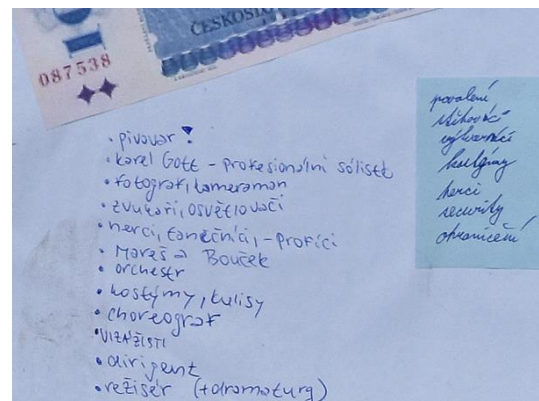 ČESKOSLO
087538
• pivovar!
• Karel Gott - profesionální sólisté
• fotograf, kameraman
• zvukaři, osvětlovači
• herci, tanečníci, - profíci
• Mareš a Bouček
• orchestr
• kostýmy, kulisy
• choreograf
• VIZÁŽISTI
• dirigent
• režisér (+dramaturg)
povolení
stěhováci
výtvarníci
kostýmy
herci
security
ohraničení